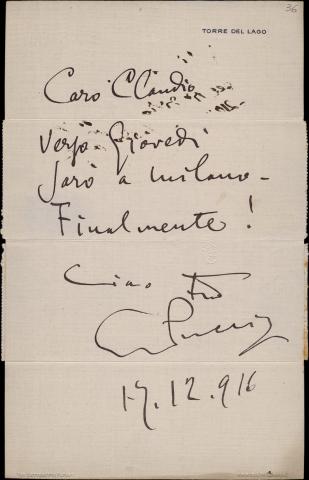 36
TORRE DEL LAGO
Caro Claudio
Verso Giovedì
sarò a milano -
Finalmente !
Ciao tuo
GPuccini
17.12.916